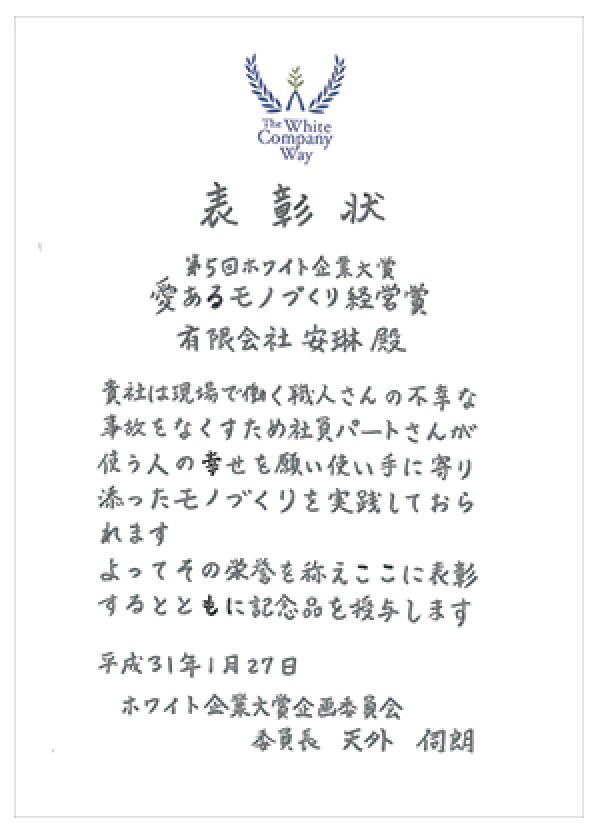 The White
Company
Way
表彰状
第5回ホワイト企業大賞
愛あるモノづくり経営賞
有限会社 安琳 殿
貴社は現場で働く職人さんの不幸な
事故をなくすため社員パートさんが
使う人の幸せを願い使い手に寄り
添ったモノづくりを実践しておら
れます
よってその栄誉を称えここに表彰
するとともに記念品を授与します
平成31年1月27日
ホワイト企業大賞企画委員会
委員長 天外 伺朗